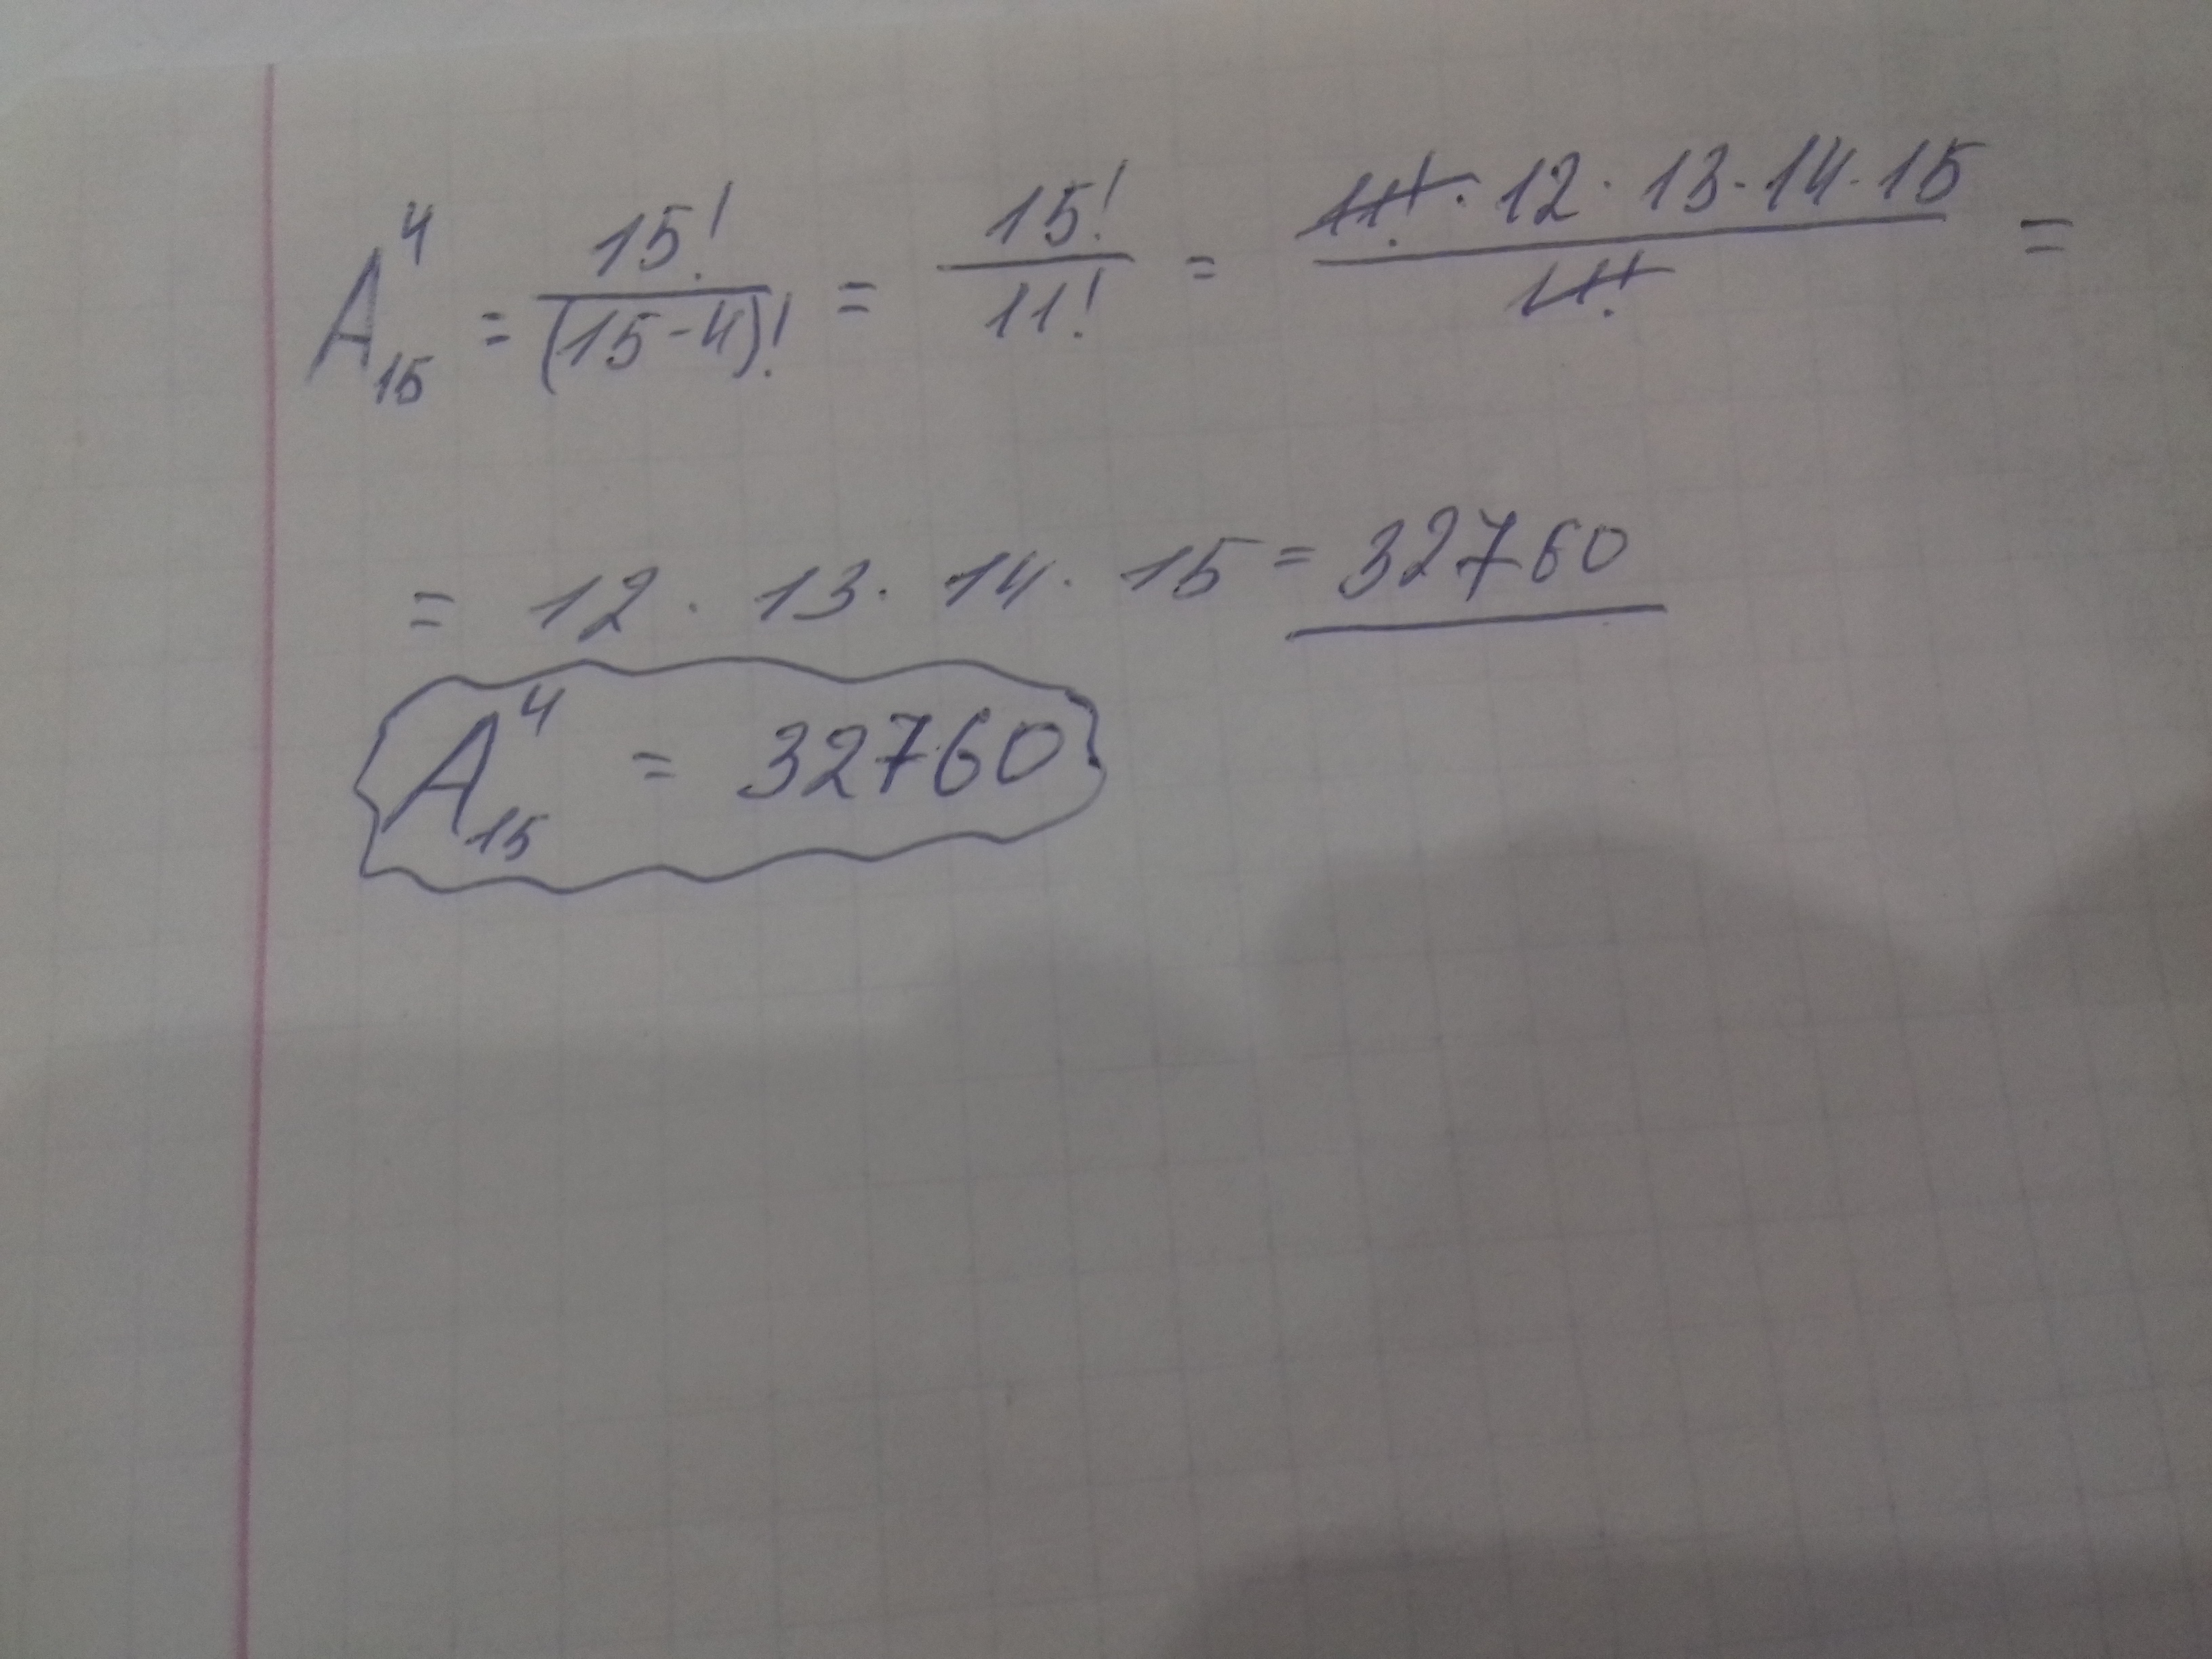 A₁₅⁴ = 15! / (15-4)! = 15! / 11! = 11! · 12 · 13 · 14 · 15 / 11! =
= 12 · 13 · 14 · 15 = 32760
A₁₅⁴ = 32760